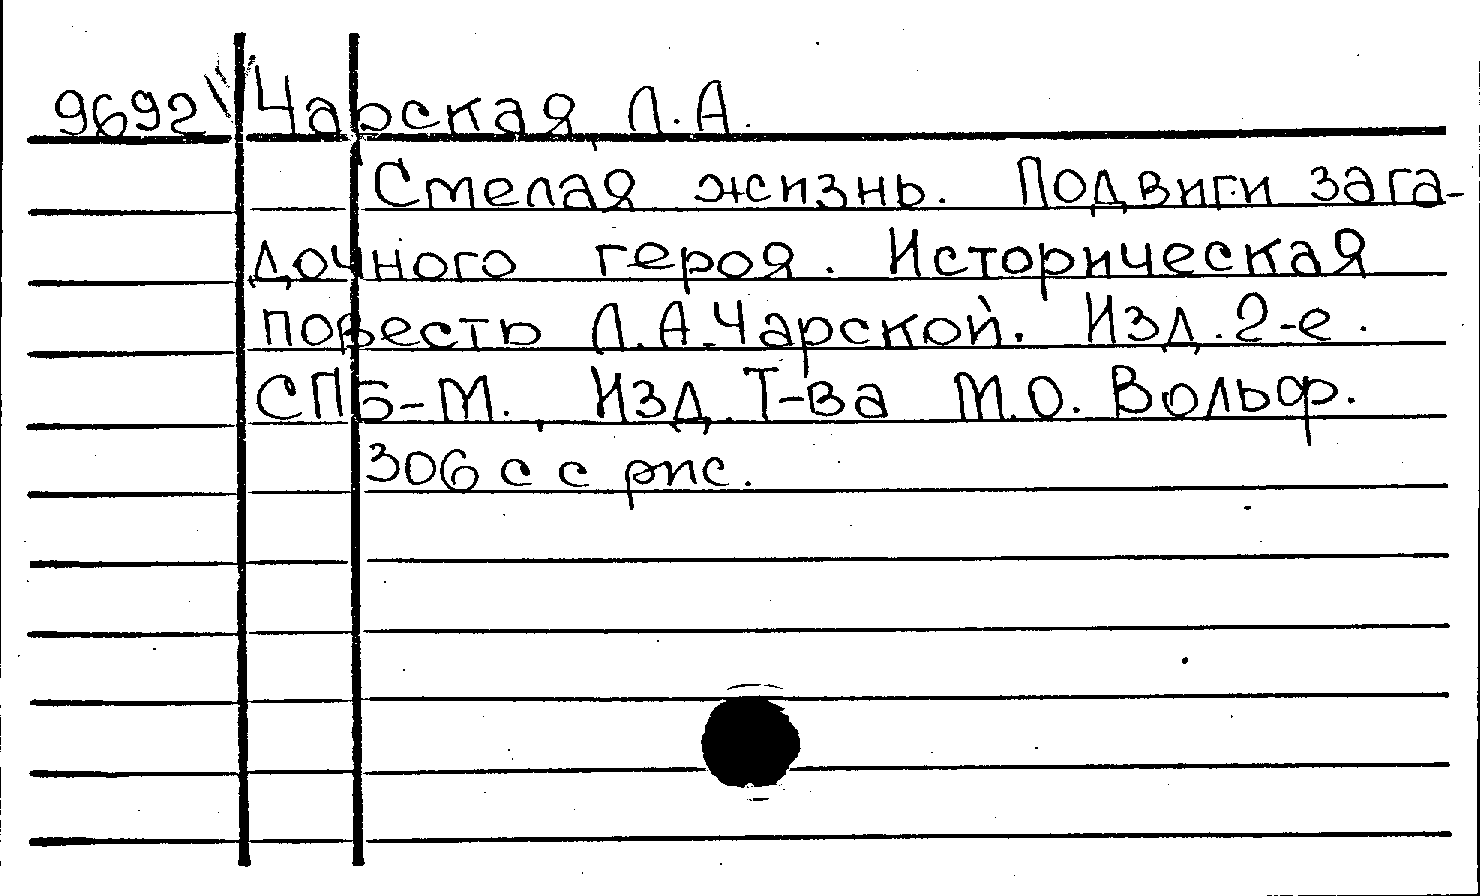 9692 Чарская Л.А.
Смелая жизнь. Подвиги зага-
дочного героя. Историческая
повесть Л.А.Чарской. Изд.2-е.
СПБ-М., Изд.Т-ва М.О.Вольф.
306 с с рис.